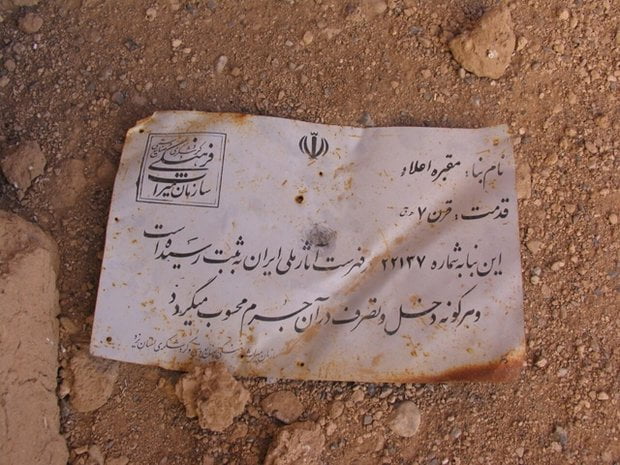 سازمان میراث فرهنگی
نام بنا: مقبره اعلاء
قدمت: قرن ۷ ه‍.ق
این بنا به شماره ۲۲۱۳۷ در فهرست آثار ملی ایران به ثبت رسیده است
و هرگونه دخل و تصرف در آن جرم محسوب میگردد